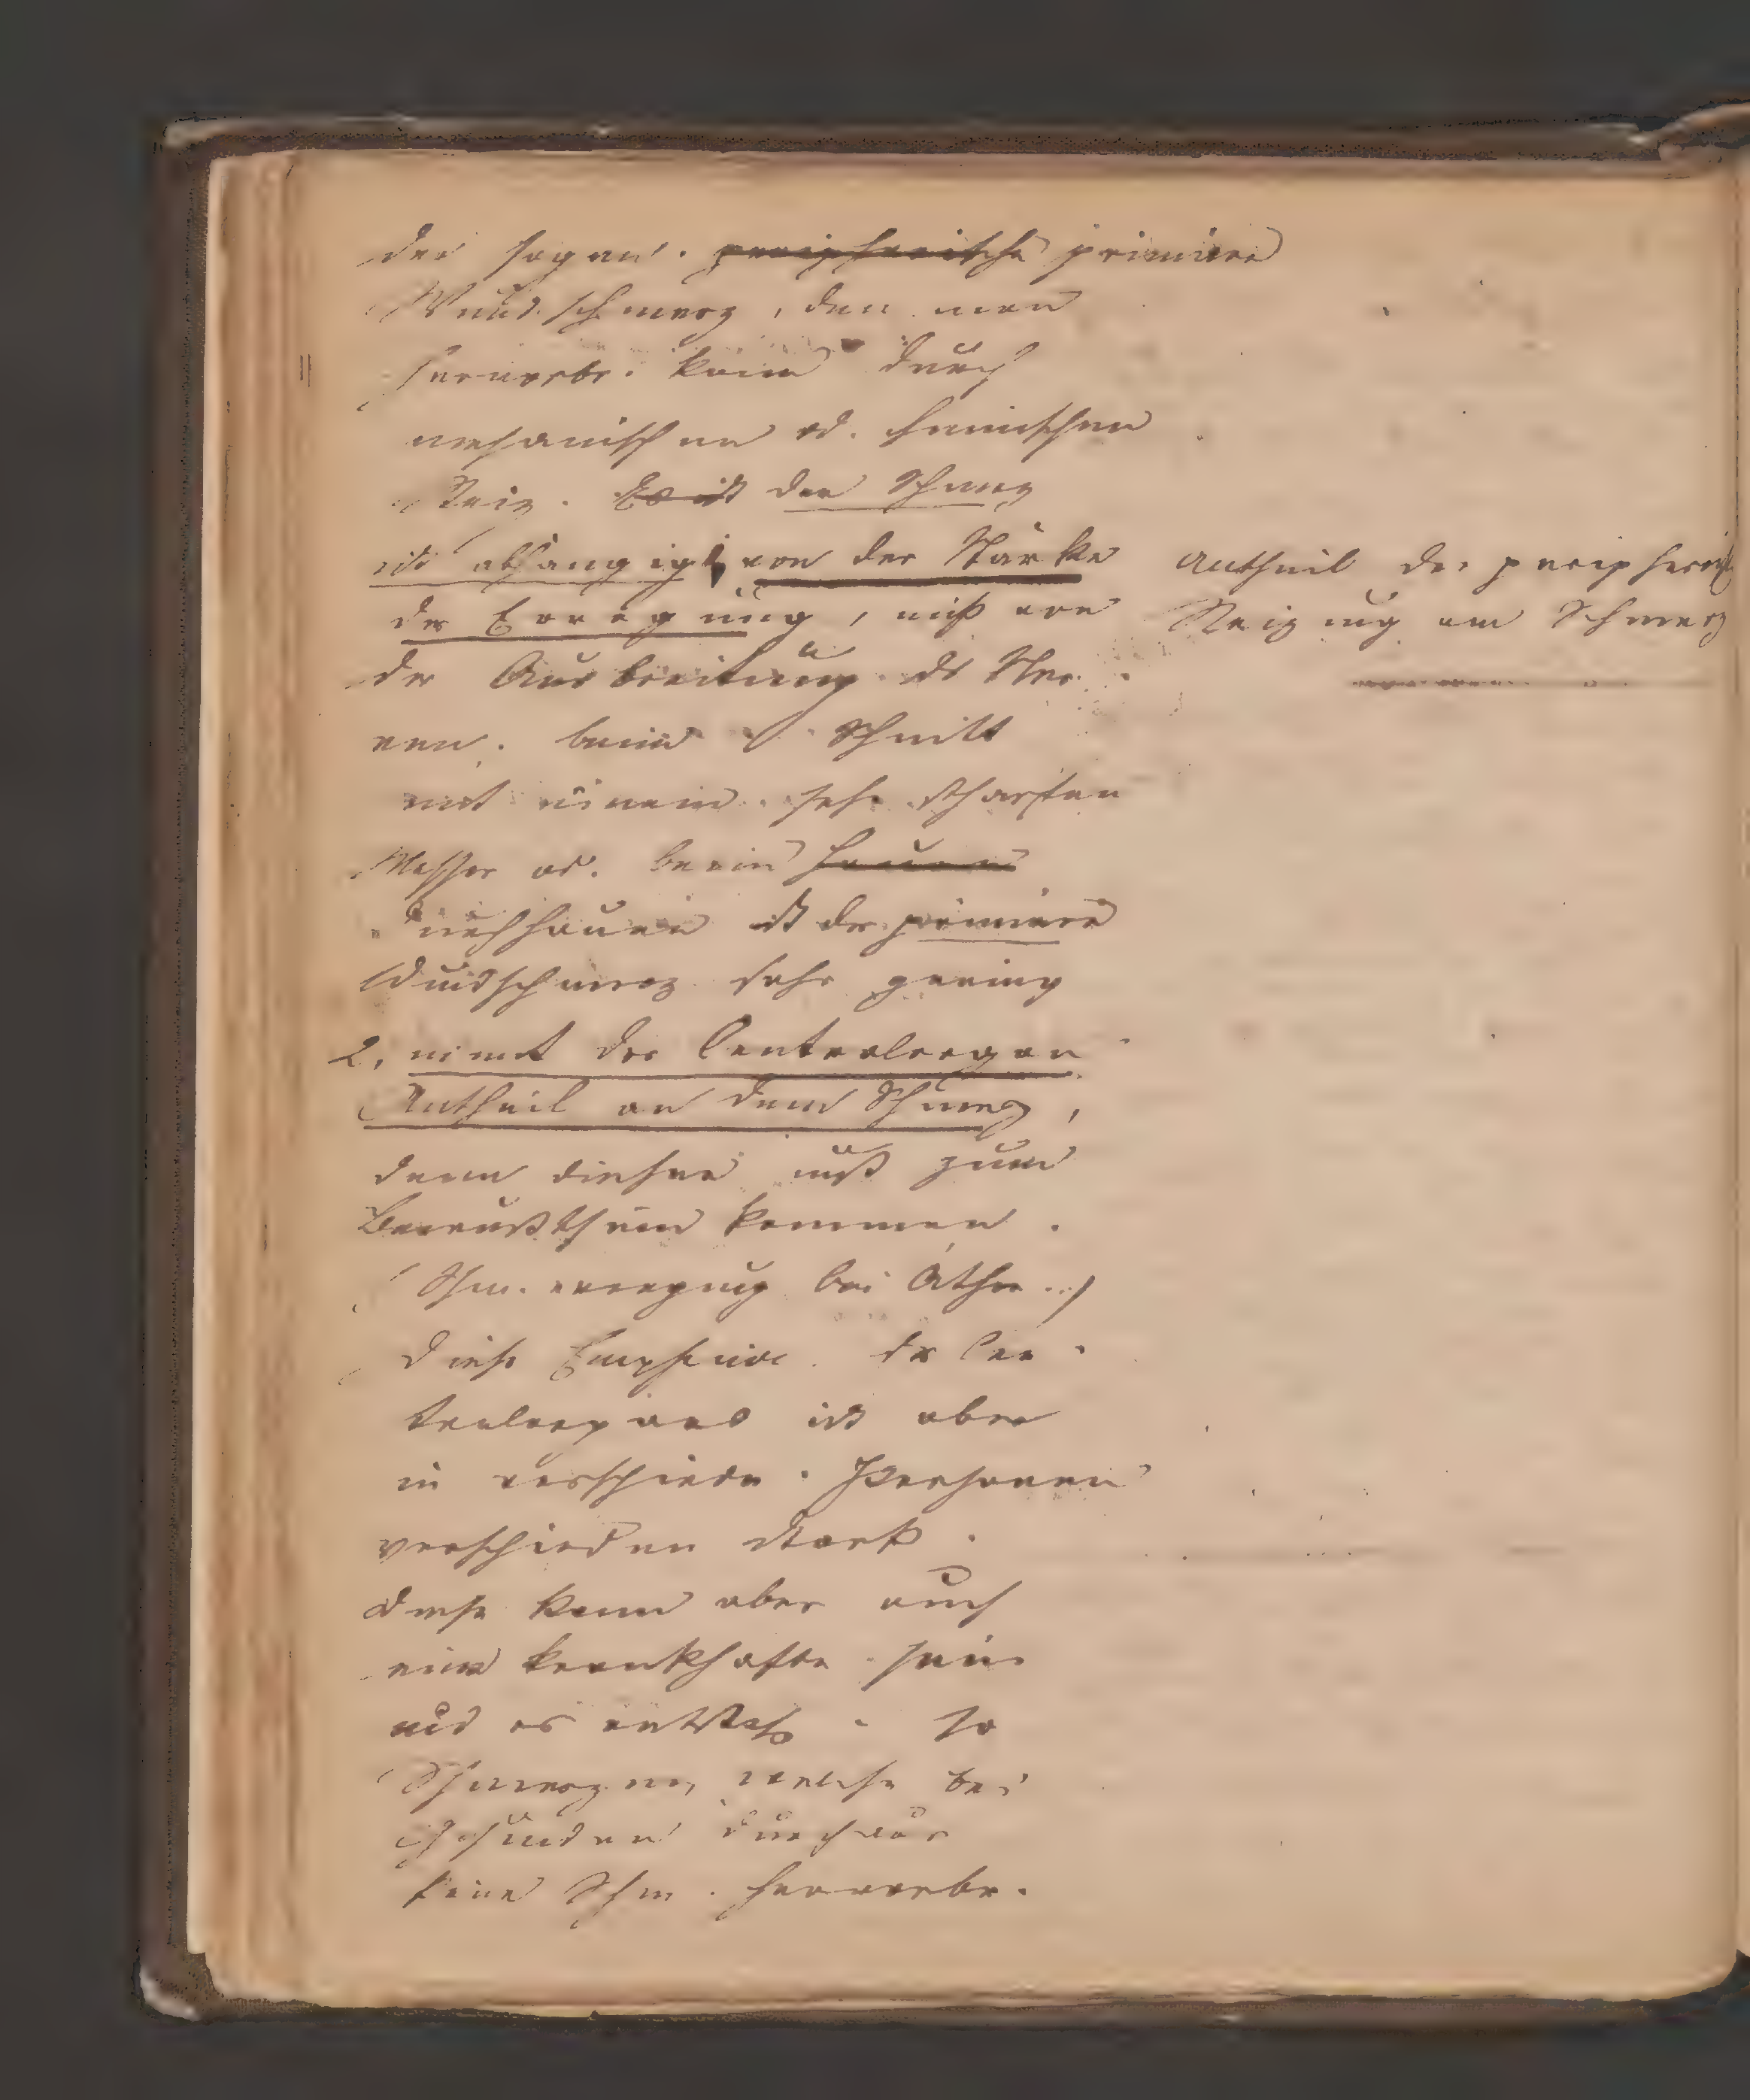 der sogen. peripherische primäre
Wundschmerz, den man
hervorbr. kann durch
mechanischen od. chemischen
Reiz. Es ist der Schmerz
ist abhängig von der Stärke
der Erregung, nicht von
der Ausbreitung ds Ner-
ven. beim Schnitt
mit einem sehr scharfen
Messer od. beim hauen
ist der primäre
Wundschmerz sehr gering
2, nimt der Centralorgan
Antheil an dem Schmerz,
denn dieser muß zum
Bewußtsein kommen.
Schm. erregung bei Äther..)
Diese Empfind. ds Cen-
tralorgans ist aber
in verschiede. Personen
verschieden stark.
diese kann aber auch
eine krankhafte sein
und es entsteh. so
Schmerzen, welche bei
Gesunden durchaus
keine Schm. hervorbr.
Antheil der peripherisch
Reizung am Schmerz